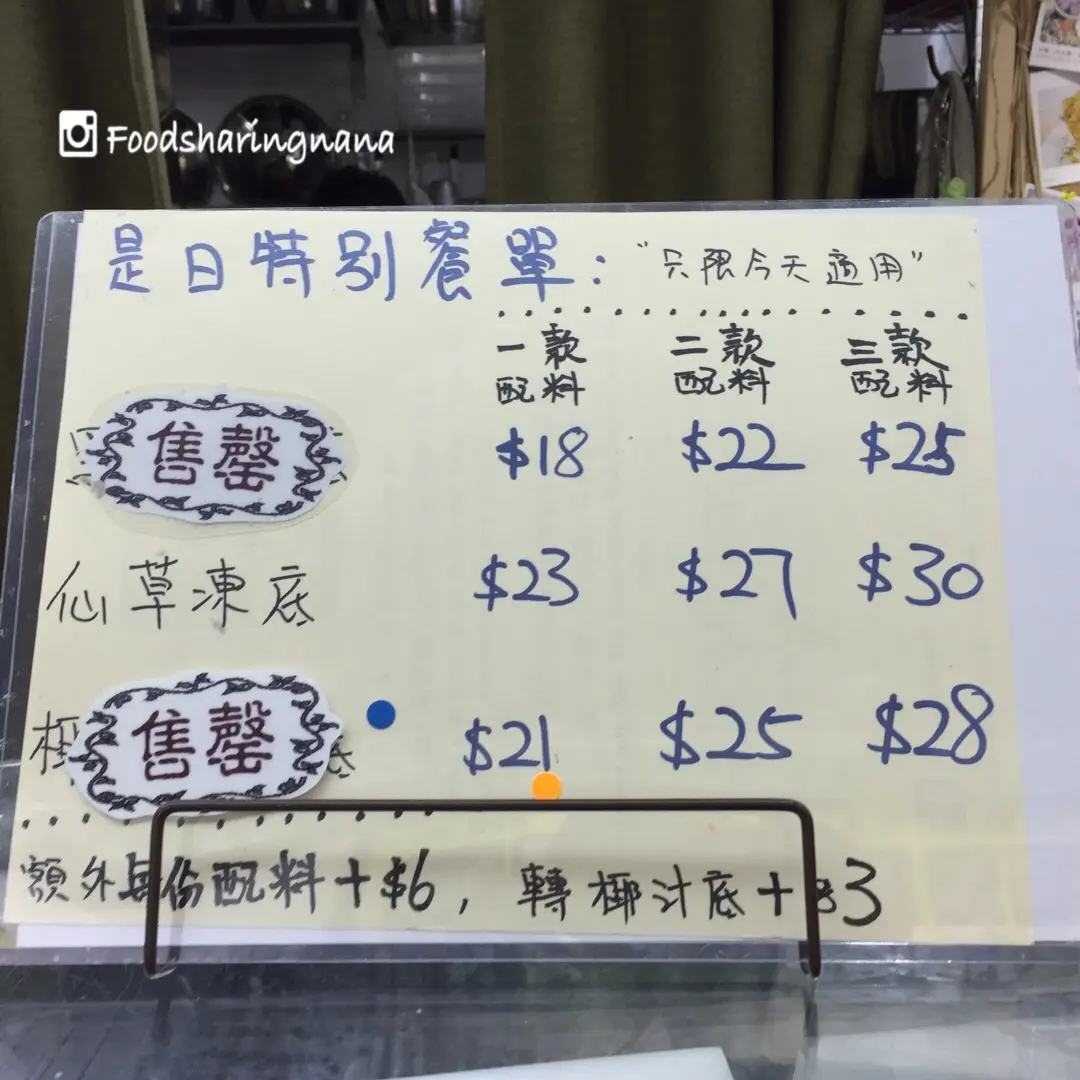 Foodsharingnana
是日特別餐單："只限今天適用"
一款配料 二款配料 三款配料
售罄 $18 $22 $25
仙草凍底 $23 $27 $30
椰 售罄 底 $21 $25 $28
額外每份配料+$6，轉椰汁底+$3